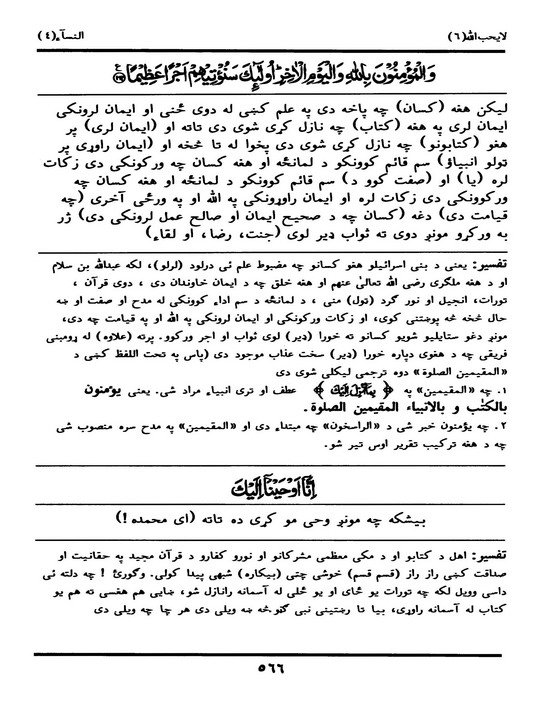 لایحب الله (٦)
النسآء (٤)
وَالْمُؤْمِنُونَ بِاللّٰهِ وَالْیَوْمِ الْاٰخِرِ اُولٰٓئِكَ سَنُؤْتِیْهِمْ اَجْرًا عَظِیْمًا
لیکن هغه (کسان) چه پاخه دی په علم کښی له دوی څنی او ایمان لرونکی
ایمان لری په هغه (کتاب) چه نازل کړی شوی دی تاته او (ایمان لری) پر
هغو (کتابونو) چه نازل کړی شوی دی پخوا له تا څخه او (ایمان راوړی پر
تولو انبیاؤ) سم قائم کوونکو د لمانځه او هغه کسان چه ورکونکی دی زکات
لره (یا) او (صفت کوو د) سم قائم کوونکو د لمانځه او هغه کسان چه
ورکوونکی دی زکات لره او ایمان راوړونکی په الله او په ورځی آخری (چه
قیامت دی) دغه (کسان چه د صحیح ایمان او صالح عمل لرونکی دی) ژر
به ورکړو مونږ دوی ته ثواب ډیر لوی (جنت، رضا، او لقاء)
تفسیر: یعنی د بنی اسرائیلو هغو کسانو چه مضبوط علم ئی درلود (لرلو)، لکه عبدالله بن سلام
او د هغه ملګری رضی الله تعالیٰ عنهم او هغه خلق چه د ایمان خاوندان دی ، دوی قرآن ،
تورات، انجیل او نور ګرد (ټول) منی ، د لمانځه د سم اداء کوونکی له مدح او صفت او ښه
حال څخه څه پوښتنی کوی، او زکات ورکونکی او ایمان لرونکی په الله او په قیامت چه دی،
مونږ دغو ستایلیو شویو کسانو ته خورا (ډیر) لوی ثواب او اجر ورکوو. پرته (علاوه) له ړومبنی
فریقی چه د هغوی دپاره خورا (ډیر) سخت عذاب موجود دی (پاس په تحت اللفظ کښی د
«المقیمین الصلوة» دوه ترجمی لیکلی شوی دی
١. چه «المقیمین» په ﴿ بِمَآ اُنْزِلَ اِلَیْكَ ﴾ عطف او تری انبیاء مراد شی. یعنی یؤمنون
بالکتٰب و بالانبیاء المقیمین الصلوة.
٢ . چه یؤمنون خبر شی د «الراسخون» چه مبتداء دی او «المقیمین» په مدح سره منصوب شی
چه د هغه ترکیب تقریر اوس تیر شو.
اِنَّآ اَوْحَیْنَآ اِلَیْكَ
بیشکه چه مونږ وحی مو کړی ده تاته (ای محمده !)
تفسیر: اهل د کتابو او د مکی معظمی مشرکانو او نورو کفارو د قرآن مجید په حقانیت او
صداقت کښی راز راز (قسم قسم) خوشی چتی (بیکاره) شبهی پیدا کولی. وګورئ ! چه دلته ئی
داسی وویل لکه چه تورات یو ځای او یو ځلی له آسمانه رانازل شو، ښایی هم هغسی ته هم یو
کتاب له آسمانه راوړی، بیا تا رښتینی نبی ګڼو څه ښه ویلی دی هر چا چه ویلی دی
٥٦٦